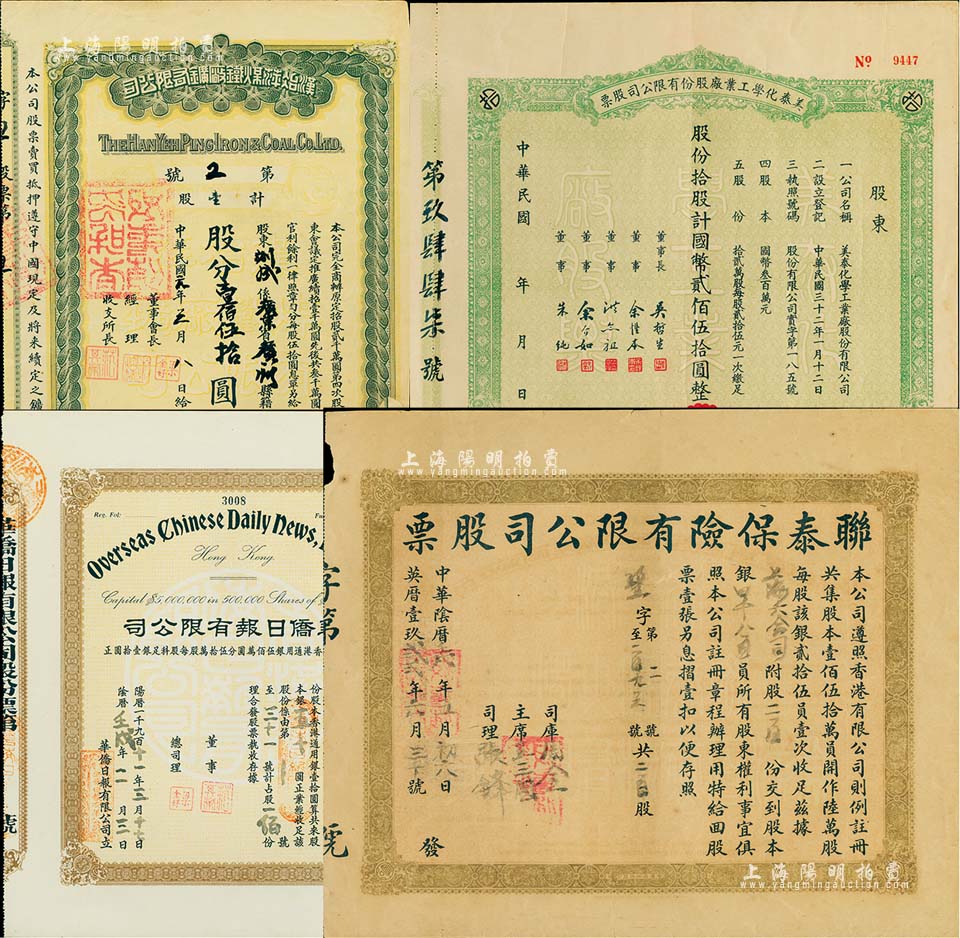 上海陽明拍賣
www.yangmingauction.com
漢冶萍煤鐵廠鑛有限公司
THE HAN YEH PING IRON & COAL CO. LTD.
第 2 號
計 壹 股
本公司完全商辦原定招股貳千萬圓第四次股
東會議定推廣續招壹千萬圓先後共叁千萬圓
官利餘利一律照章均分每股伍拾圓息單另給
股東
係廣東省廣州縣籍
股分壹百伍拾圓
中華民國元年五月八日給
董事會長
經理
收支所長
本公司股票賣買抵押遵守中國現定及將來續定之鑛
№ 9447
美泰化學工業廠股份有限公司股票
股東
一公司名稱 美泰化學工業廠股份有限公司
二設立登記 中華民國三十二年一月十二日
三執照號碼 股份有限公司實字第一八五號
四股本 國幣叁百萬元
五股份 拾貳萬股每股貳拾伍元一次繳足
股份拾股計國幣貳佰伍拾圓整
董事長 吳哲生
董事
董事
董事
董事 朱純
中華民國 年 月 日
第玖肆肆柒號
3008
Reg. Fol:
Overseas Chinese Daily News,
Hong Kong.
Capital $5,000,000 in 500,000 Shares of $
華僑日報有限公司
香港通用銀伍佰萬圓分伍拾萬股每股科足銀壹拾圓正
份股本香港通用銀壹拾圓算共來股
圓正業經收足該
號
號計占股一佰份
理合發股票執收存據
董事
總司理
陽曆一千九百
陰曆壬戌年
華僑日報有限公司立
華僑日報有限公司股份票第
號
字第
號
上海陽明拍賣
www.yangmingauction.com
聯泰保險有限公司股票
本公司遵照香港有限公司則例註冊
共集股本壹佰伍拾萬員開作陸萬股
每股該銀貳拾伍員壹次收足茲據
附股二百份交到股本
銀
員所有股東權利事宜俱
照本公司註冊章程辦理用特給回股
票壹張另息摺壹扣以便存照
字第
至
號
號共二百股
司庫
主席
司理
中華陰曆 年五月初八日
英曆壹玖貳貳年六月三號
發
上海陽明拍賣
www.yangmingauction.com